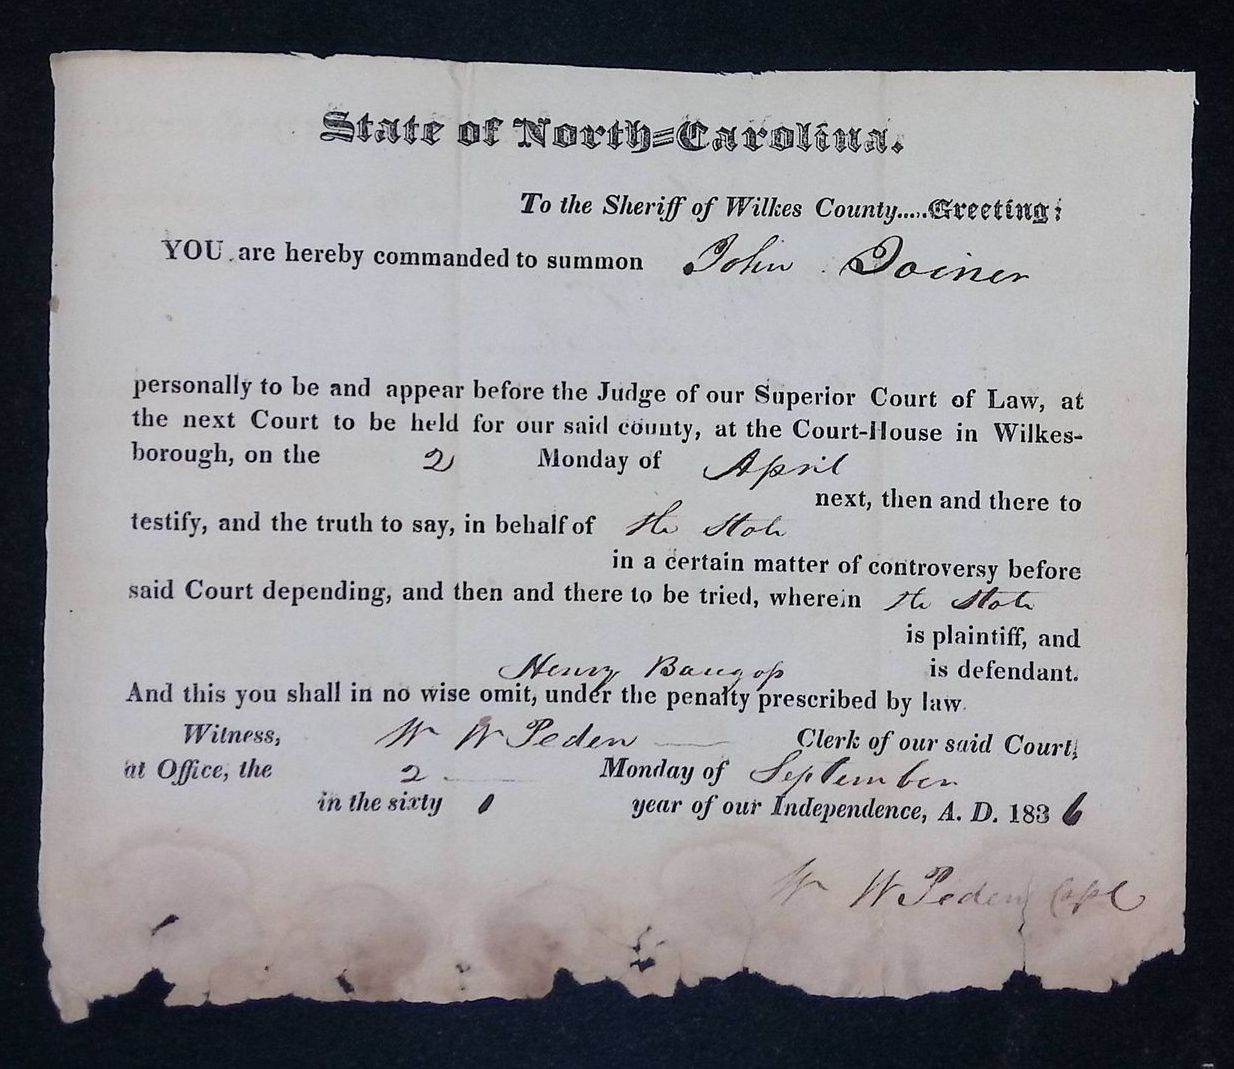 State of North=Carolina.
To the Sheriff of Wilkes County.....Greeting:
YOU are hereby commanded to summon John Joiner
personally to be and appear before the Judge of our Superior Court of Law, at
the next Court to be held for our said county, at the Court-House in Wilkes-
borough, on the 2 Monday of April
next, then and there to
testify, and the truth to say, in behalf of the State
in a certain matter of controversy before
said Court depending, and then and there to be tried, wherein the State
is plaintiff, and
Henry Baugop is defendant.
And this you shall in no wise omit, under the penalty prescribed by law.
Witness, Wm W Peden Clerk of our said Court,
at Office, the 2 Monday of September
in the sixty 1 year of our Independence, A. D. 1836
Wm W Peden